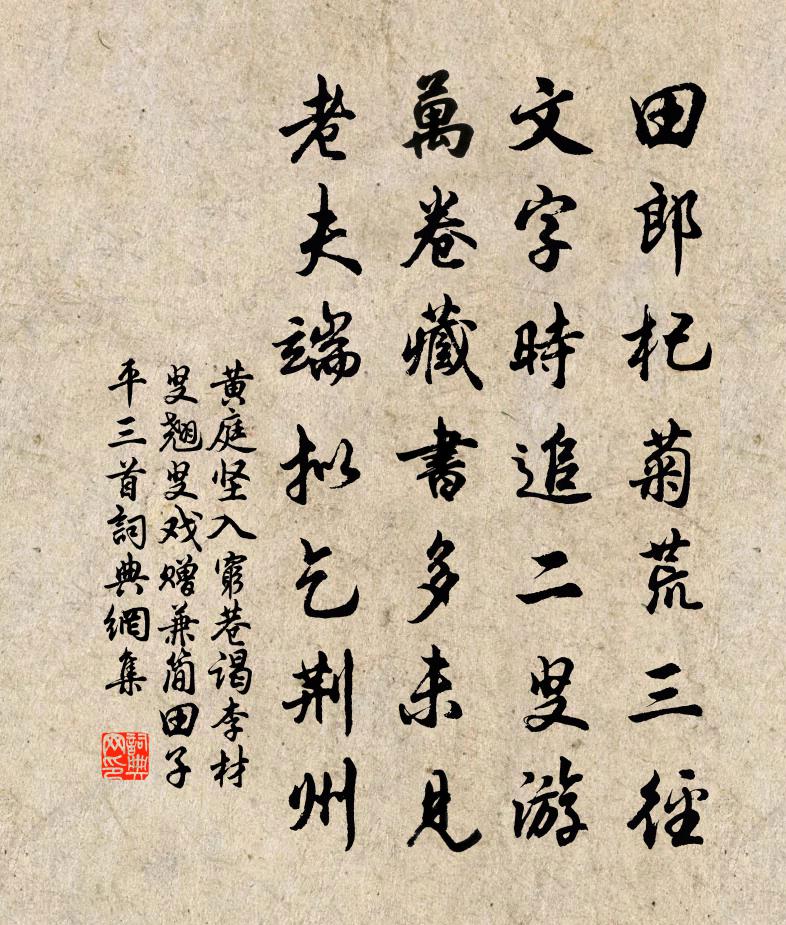 田郎杞菊荒三徑
文字時追二叟游
萬卷藏書多未見
老夫端拟乞荆州
黄庭坚入窮巷谒李材
叟翘叟戏赠兼简田子
平三首詞典網集
詞典
网印